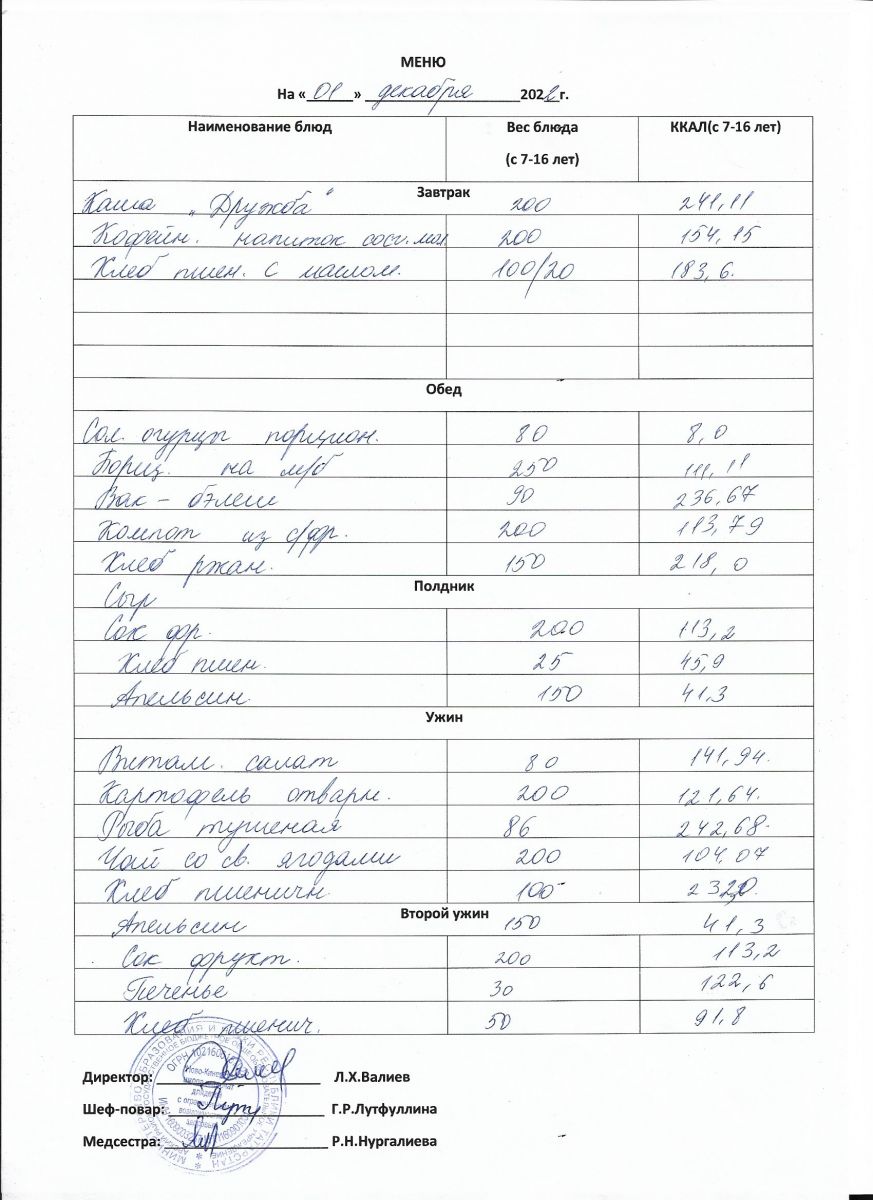 МЕНЮ
На « 01 » декабря 2022г.
Наименование блюд Вес блюда (с 7-16 лет) ККАЛ(с 7-16 лет)
Завтрак
Каша „Дружба“ 200 241,11
Кофейн. напиток сгог. мол 200 154,15
Хлеб пшен. с маслом. 100/20 183,6.
Обед
Сол. огурцы порцион. 80 8,0
Борщ. на м/б 250 111,11
Вак – бэлеш 90 236,67
Компот из с/фр. 200 113,79
Хлеб ржан. 150 218,0
Полдник
Сыр
Сок фр. 200 113,2
Хлеб пшен. 25 45,9
Апельсин. 150 41,3
Ужин
Витам. салат 80 141,94.
Картофель отварн. 200 121,64.
Рыба тушеная 86 242,68.
Чай со св. ягодами 200 104,07
Хлеб пшеничн. 100
Второй ужин
Апельсин 150 41,3
Сок фрукт. 200 113,2
Печенье 30 122,6
Хлеб пшенич. 50 91,8
Директор: Л.Х.Валиев
Шеф-повар: Г.Р.Лутфуллина
Медсестра: Р.Н.Нургалиева